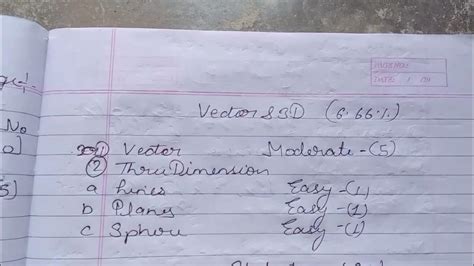 No
Vector & 3D (6.66%)
① Vector Moderate - (5)
② Three Dimension
a Lines Easy - (1)
b Planes Easy - (1)
c Sphere Easy - (1)